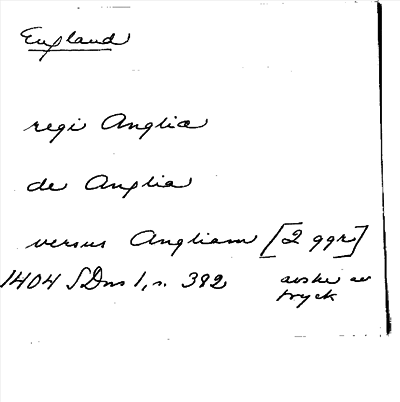 England
regi Anglie
de Anglia
versus Angliam [2 ggr]
1404 SDns 1, n. 382
avskr av
tryck